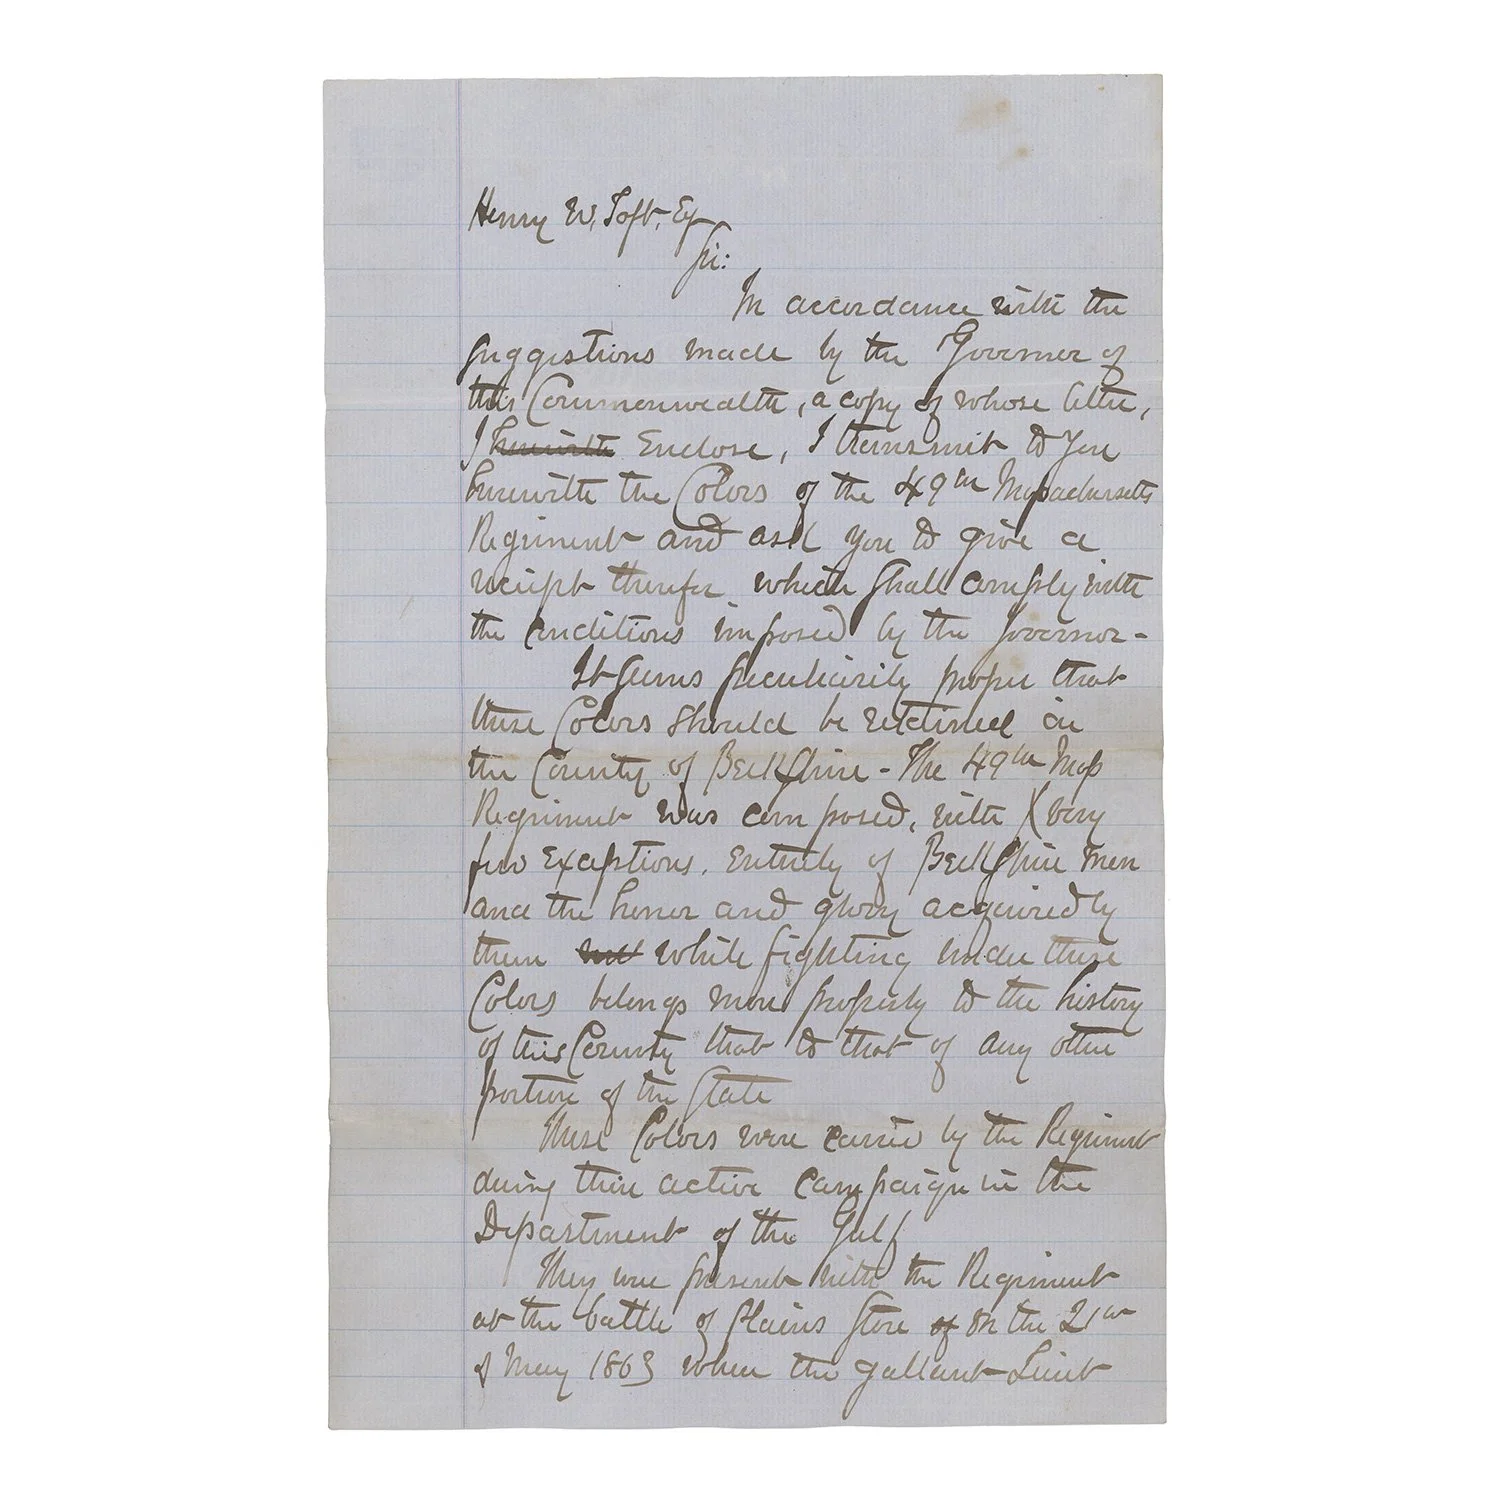 Henry W. Toft, Esq
Sir:
In accordance with the
suggestions made by the Governor of
this Commonwealth, a copy of whose letter,
I herewith Enclose, I transmit to you
herewith the Colors of the 49th Massachusetts
Regiment and ask you to give a
receipt therefor which shall comply with
the conditions imposed by the Governor-
It seems peculiarily proper that
these Colors should be retained in
the County of Berkshire - The 49th Mass
Regiment was composed, with very
few Exceptions, Entirely of Berkshire men
and the honor and glory acquired by
them while fighting under these
Colors belongs more properly to the history
of this County that to that of any other
portion of the State
These Colors were carried by the Regiment
during their active campaign in the
Department of the Gulf
They were present with the Regiment
at the battle of Plains Store of on the 21st
of May 1863 when the gallant Lieut